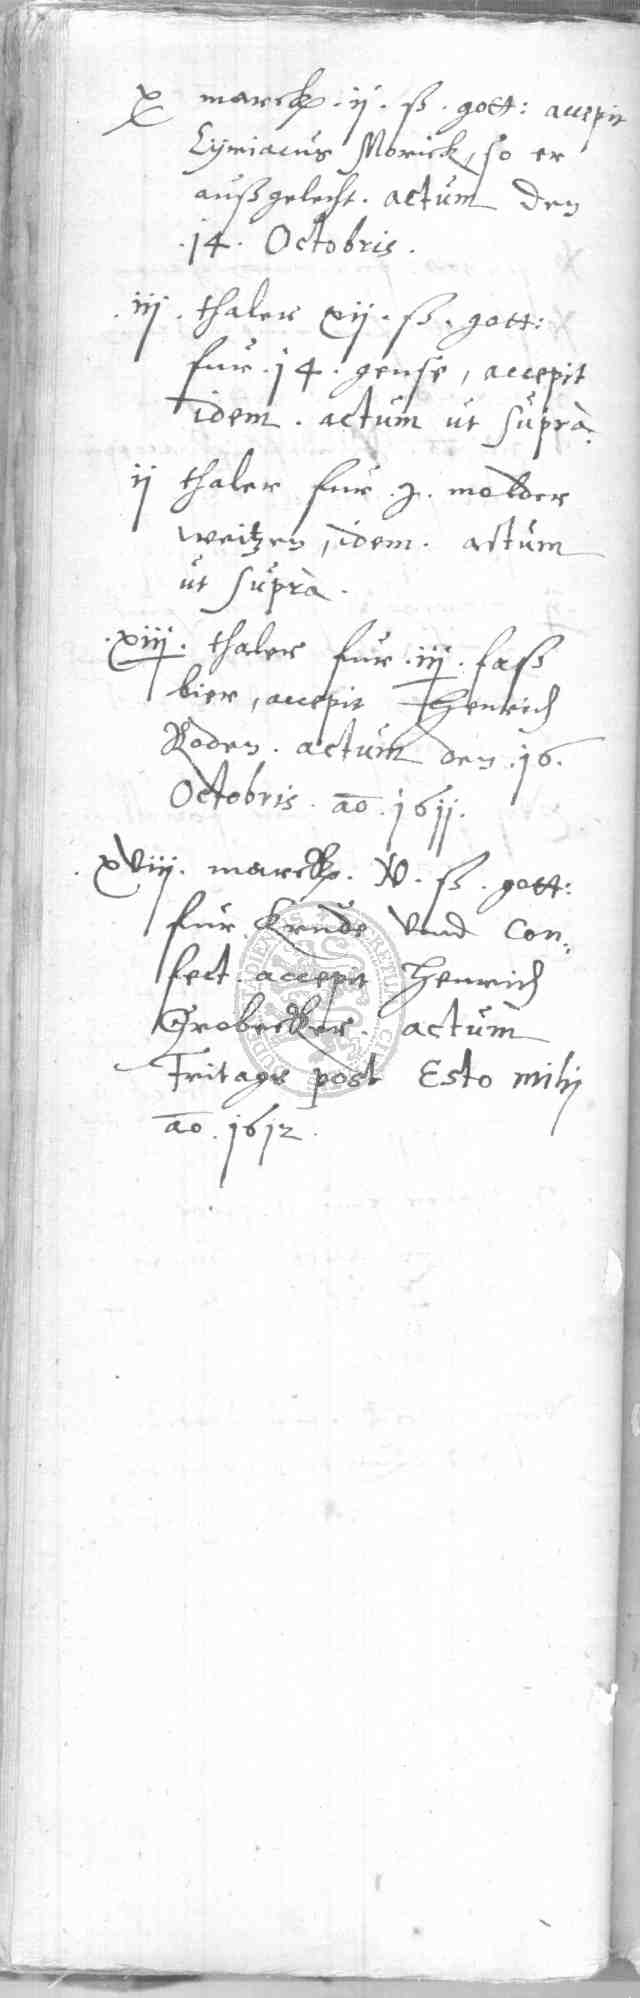 x marck. ij. ß. gott: accepit
Cyriacus Morick, so er
außgelecht. actum den
.14. Octobris.
.iij. thaler xij. ß. gott:
fur .14. gense, accepit
idem. actum ut suprà.
ij thaler fur .2. molder
weitzen, idem. actum
ut suprà.
.xiij. thaler fur .iij. faß
bier, accepit Henrich
Roden. actum den .16.
Octobris. ao. 1611.
.xviij. marck. iv. ß. gott:
fur Krude vnd Con=
fect. accepit Henrich
Grobecker. actum
Fritags post Esto mihi
ao. 1612.